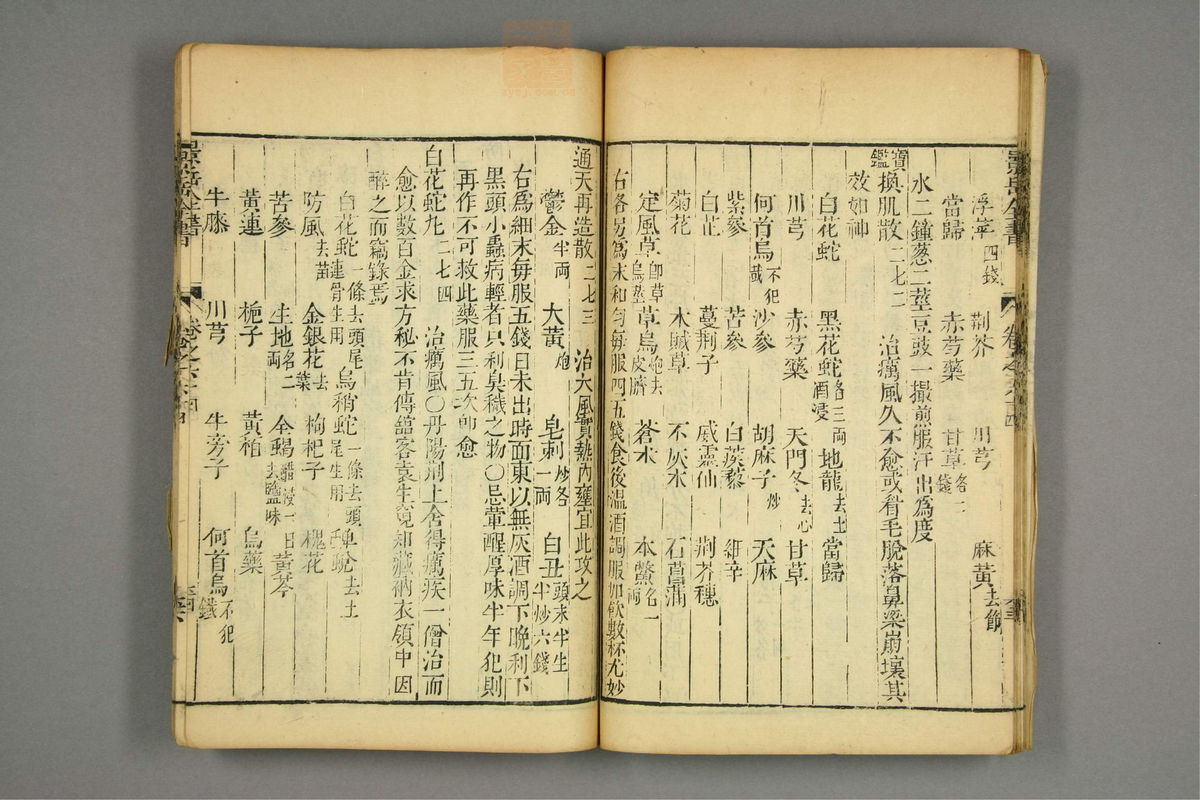 景岳全書 卷之六十四
浮萍四錢 荆芥 川芎 麻黃去節
當歸 赤芍藥 甘草各二錢
水二鐘葱二莖豆豉一撮煎服汗出爲度
寶鑑換肌散二七二 治癘風久不愈或眉毛脫落鼻梁崩壞其
效如神
白花蛇 黑花蛇各三兩酒浸 地龍去土 當歸
川芎 赤芍藥 天門冬去心 甘草
何首烏不犯鐵 沙參 胡麻子炒 天麻
紫參 苦參 白蒺藜 細辛
白芷 蔓荆子 威靈仙 荆芥穗
菊花 木賊草 不灰木 石菖蒲
定風草卽草烏莖 草烏炮去皮臍 蒼朮 木鱉各一兩
右各另爲末和勻每服四五錢食後溫酒調服加飲數杯尤妙
通天再造散二七三 治大風實熱內壅宜此攻之
鬱金半兩 大黃炮 皂刺炒各一兩 白丑頭末半生半炒六錢
右爲細末每服五錢日未出時面東以無灰酒調下晚利下
黑頭小蟲病輕者只利臭穢之物○忌葷腥厚味半年犯則
再作不可救此藥服三五次卽愈
白花蛇丸二七四 治癘風○丹陽荆上舍得癘疾一僧治而
愈以數百金求方秘不肯傳館客袁生竟知藏衲衣領中因
醉之而竊錄焉
白花蛇一條去頭尾連骨生用 烏稍蛇一條去頭尾生用 蟬蛻去土
防風去苗 金銀花去葉 枸杞子 槐花
苦參 生地各二兩 全蝎醋浸一日去鹽味 黃芩
黃連 梔子 黃柏 烏藥
牛膝 川芎 牛旁子 何首烏不犯鐵
景岳全書 卷之六十四